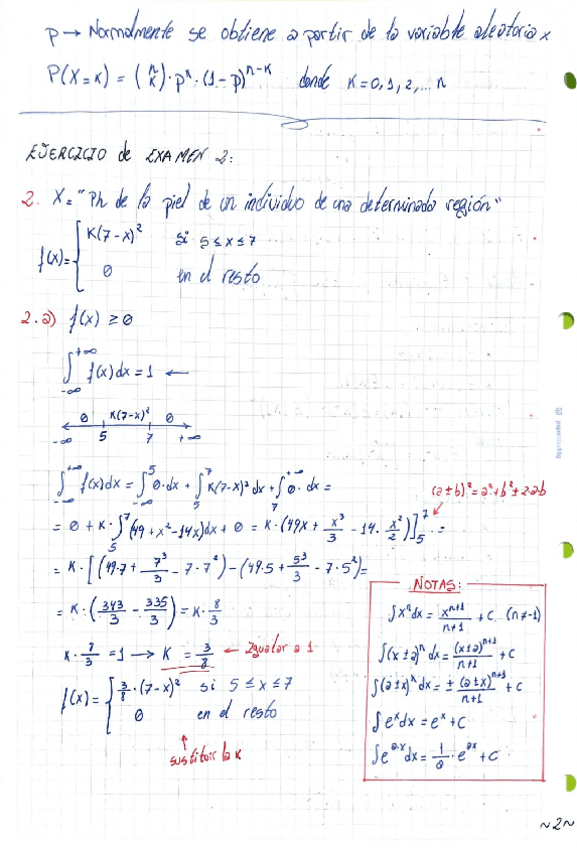 p → Normalmente se obtiene a partir de la variable aleatoria x
P(X=k) = (n k) · p^k · (1-p)^{n-k} donde k=0,1,2,...n
EJERCICIO de EXAMEN 2:
2. X = "Ph de la piel de un individuo de una determinada región"
f(x) = { k(7-x)² si 5 ≤ x ≤ 7
0 en el resto
2.a) f(x) ≥ 0
∫_{-∞}^{+∞} f(x)dx = 1 ←
0 k(7-x)² 0
-∞ 5 7 +∞
∫_{-∞}^{+∞} f(x)dx = ∫_{-∞}^{5} 0·dx + ∫_5^7 k(7-x)² dx + ∫_7^{+∞} 0·dx =
(a±b)² = a²+b²±2·a·b
= 0 + k·∫_5^7 (49+x²-14x)dx + 0 = k·(49x + x³/3 - 14·x²/2)]_5^7 =
= k·[(49·7 + 7³/3 - 7·7²) - (49·5 + 5³/3 - 7·5²)] =
= k·(343/3 - 335/3) = k·8/3
k·8/3 = 1 → k = 3/8 ← Igualar a 1
f(x) = { 3/8·(7-x)² si 5 ≤ x ≤ 7
0 en el resto
sustituir la k
NOTAS:
∫xⁿdx = x^{n+1}/(n+1) + C (n≠-1)
∫(x±a)ⁿ dx = (x±a)^{n+1}/(n+1) + C
∫(a±x)ⁿ dx = ± (a±x)^{n+1}/(n+1) + C
∫eˣdx = eˣ + C
∫e^{a·x}dx = 1/a · e^{ax} + C
~2~